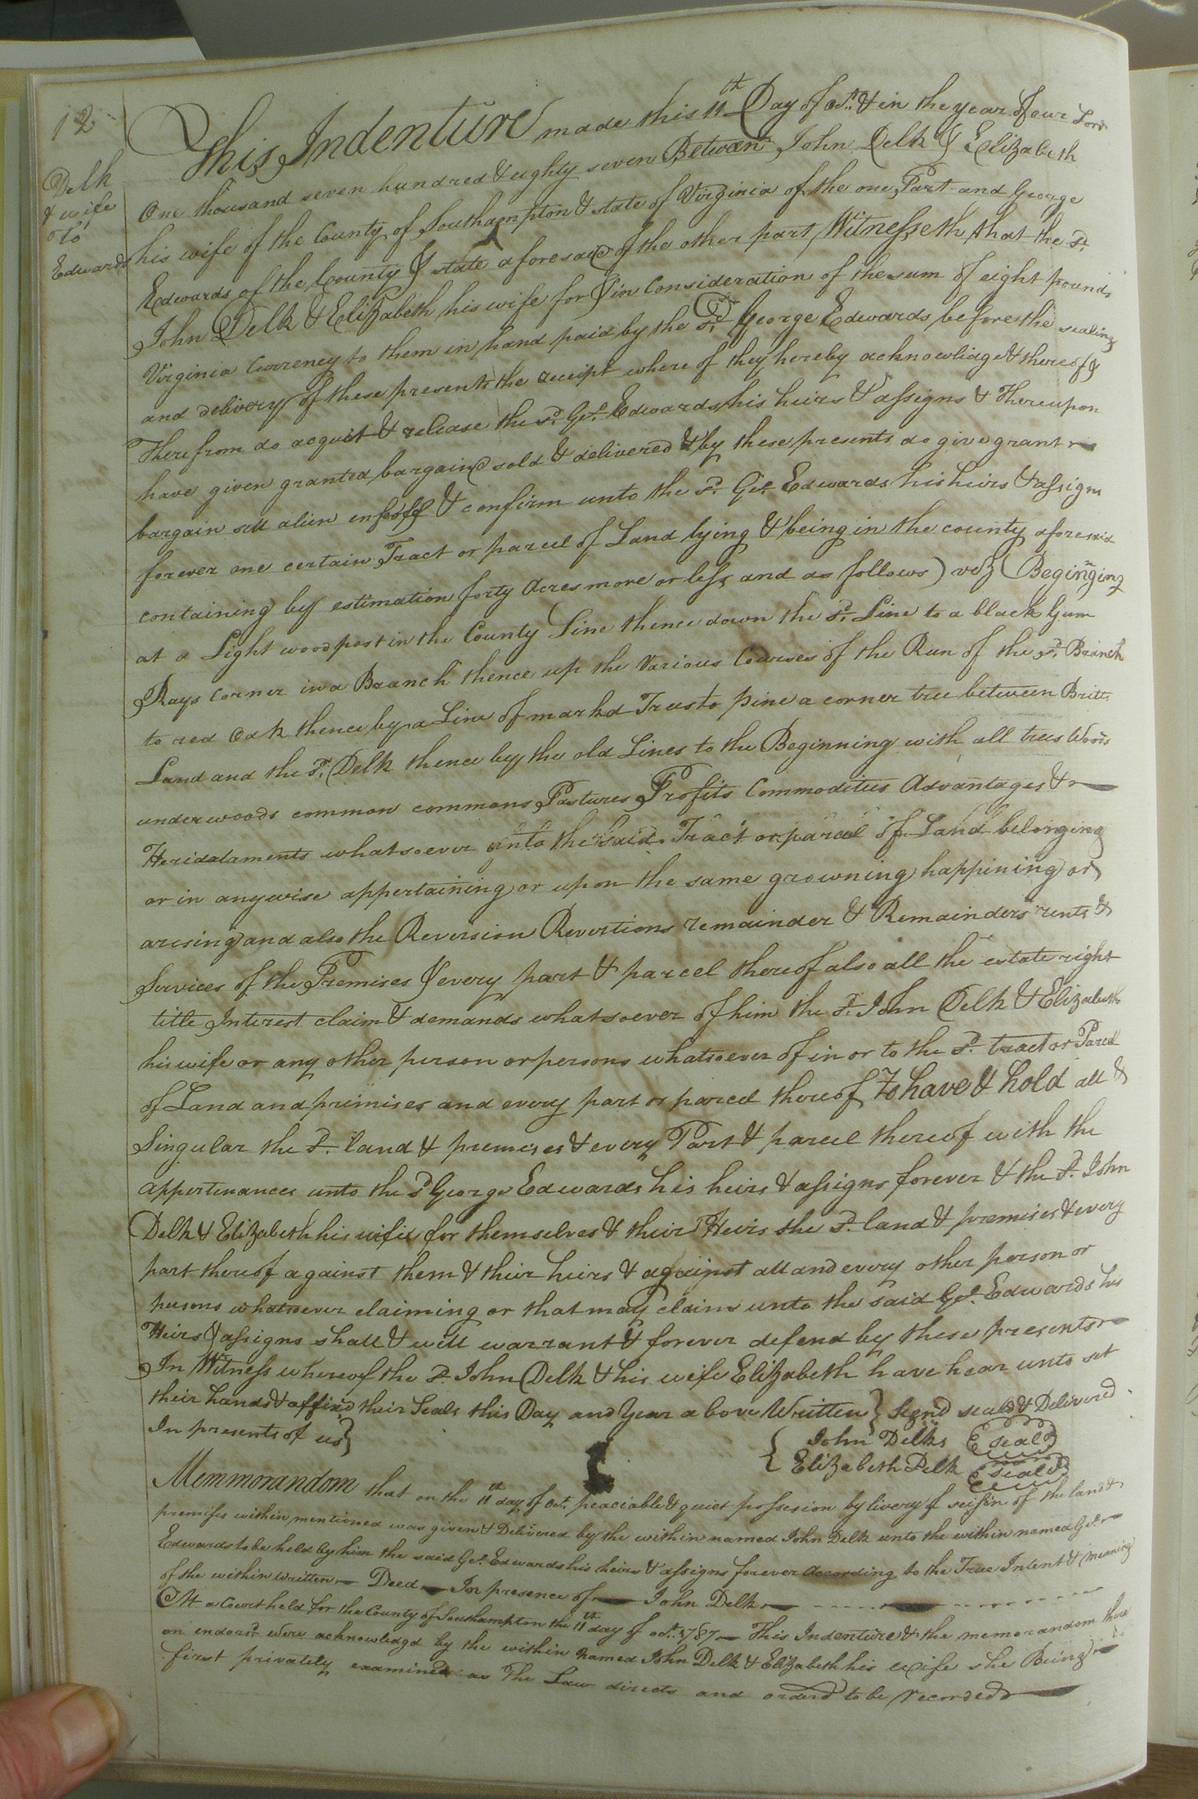 12
Delk
& wife
To
Edwards
This Indenture made this 11th Day of Oct. & in the year of our Lord
One thousand seven hundred & eighty seven Between John Delk & Elizabeth
his wife of the County of Southampton & state of Virginia of the one Part and George
Edwards of the County & state aforesaid of the other part Witnesseth that the sd.
John Delk & Elizabeth his wife for & in Consideration of the sum of eight pounds
Virginia Currency to them in hand paid by the sd. George Edwards before the sealing
and delivery of these presents the receipt where of they hereby acknowlidge & thereof &
Therefrom do acquit & release the sd. Geo. Edwards his heirs & assigns & Thereupon
have given granted bargaind sold & delivered & by these presents do give grant
bargain sell alien enfeoff & confirm unto the sd. Geo. Edwards his heirs & assigns
forever one certain Tract or parcel of Land lying & being in the county aforesaid
containing by estimation forty Acres more or less and as follows) viz (Beginging
at a Light wood post in the County Line thence down the sd. Line to a black Gum
Rays corner in a Baanch thence up the Various Courses of the Run of the sd. Branch
to red Oak thence by a Line of markd Trees to pine a corner tree between Britts
Land and the sd. Delk thence by the old Lines to the Beginning with all trees Woods
underwoods common commons Pastures Profits Commodities Advantages &
Heridataments whatsoever unto the said Tract or parcel of Land belonging
or in anywise appertaining or upon the same growning happining or
arising and also the Reversion Revertions remainder & Remainders rents &
Services of the Premises & every part & parcel thereof also all the estate right
title Interest claim & demands whatsoever of him the sd. John Delk & Elizabeth
his wife or any other person or persons whatsoever of in or to the sd. tract or Parcel
of Land and primises and every part or parcel thereof To have & hold all &
Singular the sd. land & premises & every Part & parcel thereof with the
appertenances unto the sd George Edwards his heirs & assigns forever & the sd. John
Delk & Elizabeth his wife for themselves & their Heirs the sd. land & premises & every
part thereof against them & their heirs & against all and every other person or
persons whatsoever claiming or that may claim unto the said Geo. Edwards his
Heirs & assigns shall & will warrant & forever defend by these presents
In Witness whereof the sd. John Delk & his wife Elizabeth have hear unto set
their hands & affixd their Seals this Day and Year above Written } Signd seald & Delivered
In presents of us }
{ John Delks (seal)
Elizabeth Delk (seald)
Memmorandom that on the 11th day of Oct. peaciable & quiet possesion by livery of seisin of the land &
premises within mentioned was given & Delivered by the within named John Delk unto the within named Geo.
Edwards to be held by him the said Geo. Edwards his heirs & assigns forever according to the True Intent & meaning
of the within Written Deed In presence of John Delk
At a Court held for the County of Southampton the 11th day of oct. 1787 This Indenture & the memorandom there
on endorsd. were acknowledgd by the within Named John Delk & Elizabeth his wife she Being
first privately examined as The Law directs and orderd to be recorded